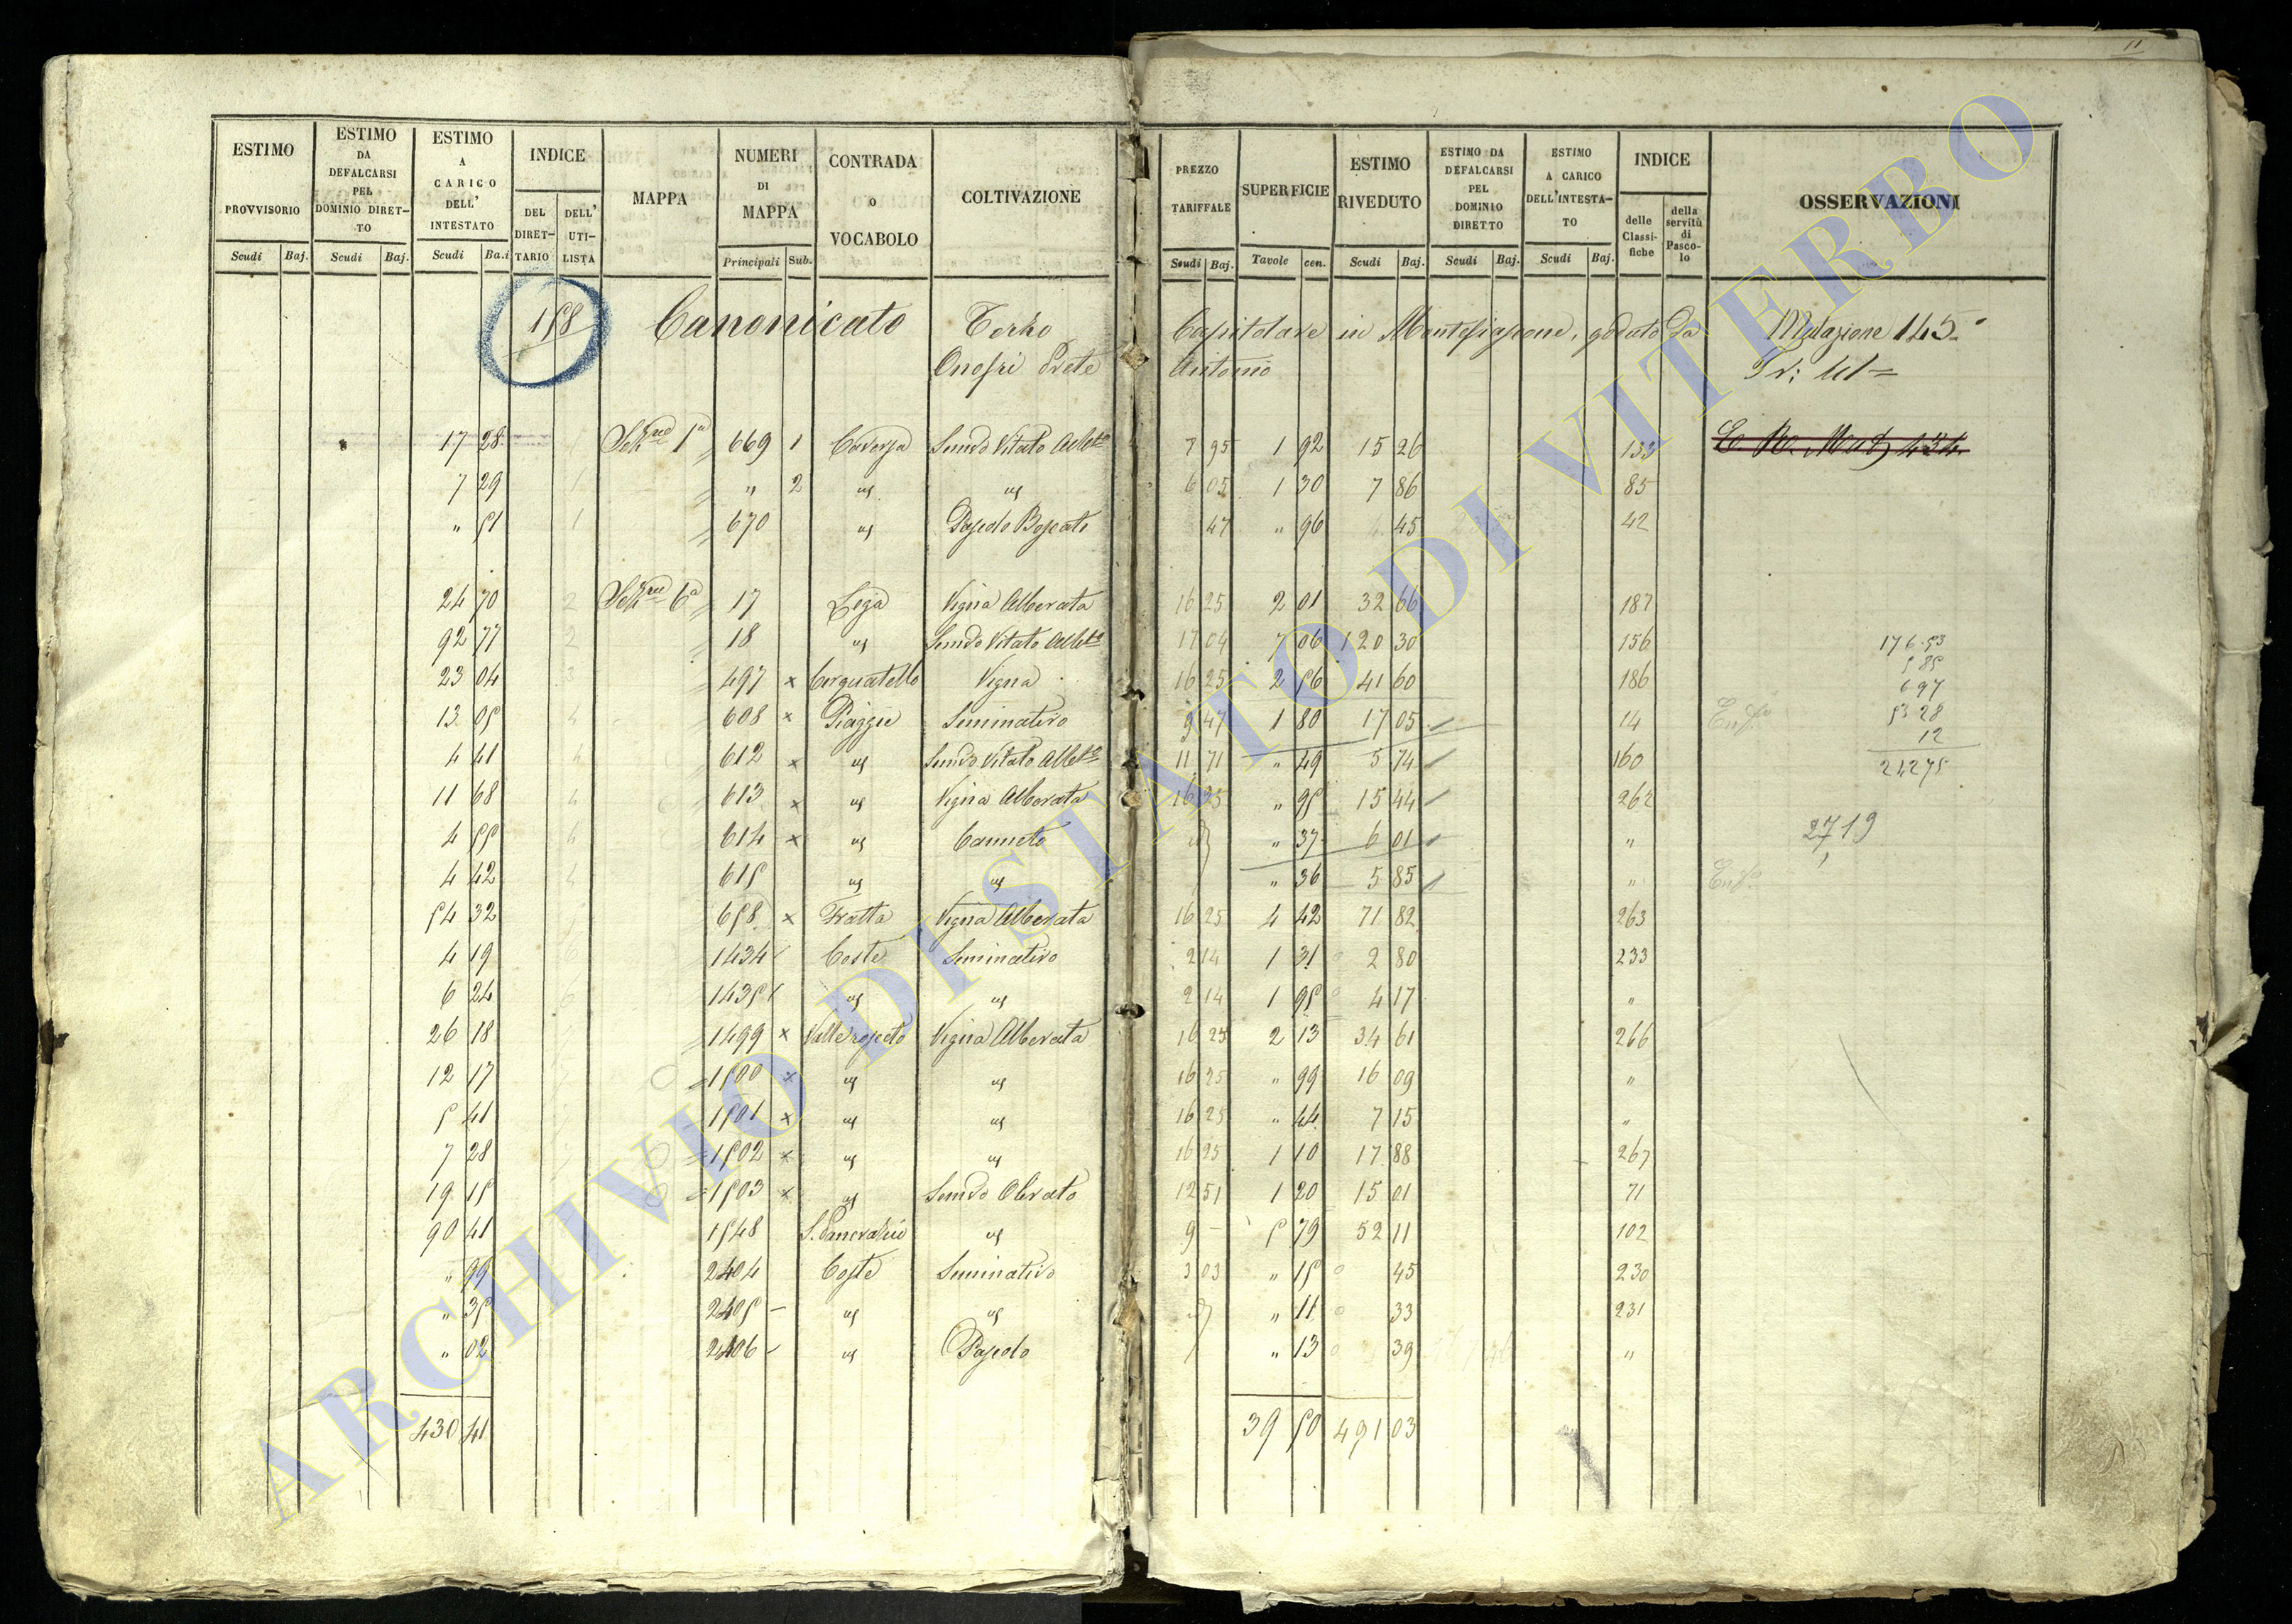 11
ESTIMO PROVVISORIO Scudi Baj.
ESTIMO DA DEFALCARSI PEL DOMINIO DIRETTO Scudi Baj.
ESTIMO A CARICO DELL' INTESTATO Scudi Ba.i
INDICE DEL DIRETTARIO DELL' UTILISTA
MAPPA
NUMERI DI MAPPA Principali Sub.
CONTRADA o VOCABOLO
COLTIVAZIONE
PREZZO TARIFFALE Scudi Baj.
SUPERFICIE Tavole cen.
ESTIMO RIVEDUTO Scudi Baj.
ESTIMO DA DEFALCARSI PEL DOMINIO DIRETTO Scudi Baj.
ESTIMO A CARICO DELL'INTESTATO Scudi Baj.
INDICE delle Classifiche della servitù di Pascolo
OSSERVAZIONI
158 Canonicato Terzo Capitolare in Montefiascone, goduto da Mutazione 145
Onofri Prete Antonio
17 28 1 Sezne 1a 669 1 Seminvo Vitato Albto 7 95 1 92 15 26 133
7 29 1 " 2 us us 6 05 1 30 7 86 85
" 51 1 670 us Pascolo Boscato 47 " 96 45 42
24 70 2 Sezne 6a 17 Vigna Alberata 16 25 2 01 32 66 187
92 77 2 18 us Seminvo Vitato Albto 17 04 7 06 120 30 156
23 04 3 497 x Cerquatello Vigna 16 25 2 56 41 60 186
13 05 4 608 x Piaggie Seminativo 9 47 1 80 17 05 14
4 41 4 612 x us Seminvo Vitato Albto 11 71 " 49 5 74 160
11 68 4 613 x us Vigna Alberata 16 25 " 95 15 44 262
4 55 4 614 x us Canneto " 37 6 01 "
4 42 4 615 us us " 36 5 85 "
54 32 5 658 x Fratta Vigna Alberata 16 25 4 42 71 82 263
4 19 6 1434 Coste Seminativo 2 14 1 31 2 80 233
6 24 6 1435 us us 2 14 1 95 4 17 "
26 18 1499 x Vigna Alberata 16 25 2 13 34 61 266
12 17 1500 x us us 16 25 " 99 16 09 "
5 41 1501 x us us 16 25 " 44 7 15 "
7 28 1502 x us us 16 25 1 10 17 88 267
19 15 1503 x us 12 51 1 20 15 01 71
90 41 1548 S. Pancrazio us 9 - 5 79 52 11 102
" 99 2404 Coste Seminativo 3 03 " 15 45 230
" 35 2405 us us " 11 33 231
" 02 2406 us Pascolo " 13 39 "
430 41 39 50 491 03
176.53
5 85
6 97
53 28
12
242 75
2719
ARCHIVIO DI STATO DI VITERBO